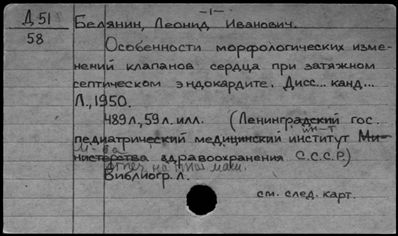 -1-
Д 51
58
Белянин, Леонид Иванович.
Особенности морфологических изме-
нений клапанов сердца при затяжном
септическом эндокардите. Дисс... канд...
Л., 1950.
489 л, 59 л. илл. (Ленинградский гос.
педиатрический медицинский институт Ми-
ин-т
нистерства здравоохранения С.С.С.Р.)
М-ва
Отпеч. на пиш. маш.
Библиогр. л.
см. след. карт.